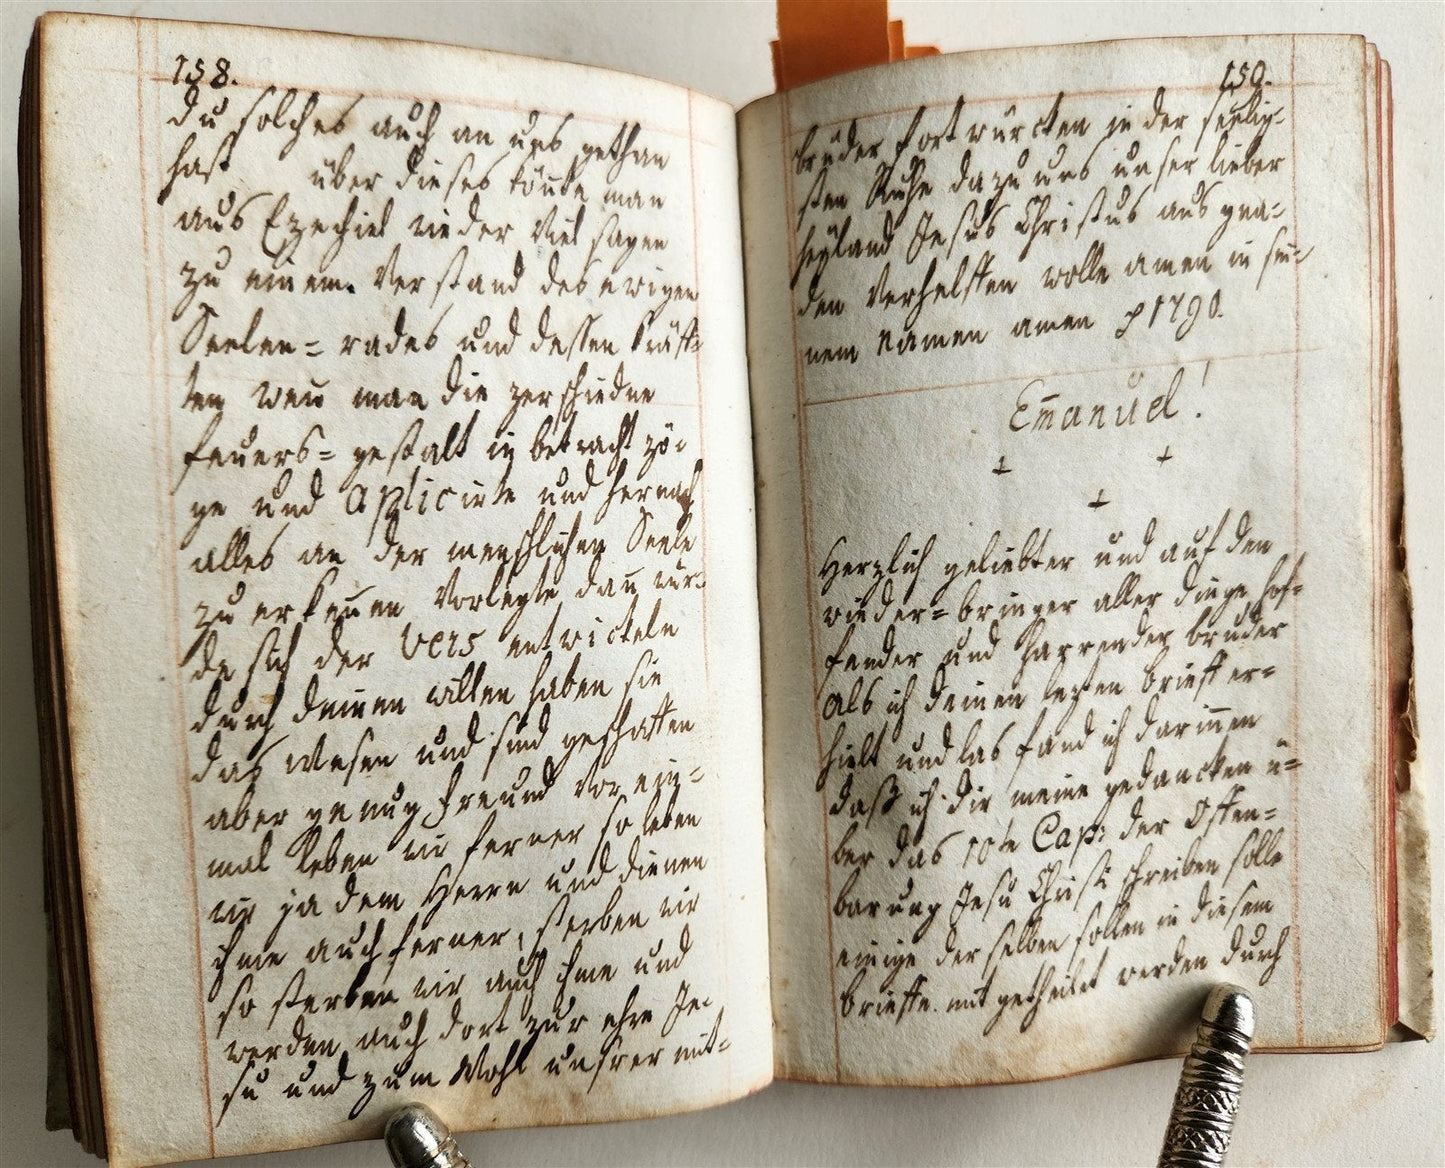 158.
du solches auch an uns gethan
hast über dieses könte man
aus Ezechiel wieder Viel sagen
zu einem Verstand des ewigen
Seelen= rades und dessen Kräff=
ten wen̄ man die zerschiedne
feuers= gestalt in betracht zö=
ge und Aplicirte und hernach
alles an der menschlichen Seele
zu erken̄en Vorlegte dan̄ wür=
de sich der Vers entwickeln
durch deinen willen haben sie
das wesen und sind geschaffen
aber genug freund Vor ein=
mal leben wir ferner so leben
wir ja dem Herrn und dienen
ihme auch ferner, sterben wir
so sterben wir auch ihme und
werden auch dort zur ehre Je=
su und zum Wohl unsrer mit=
159.
brüder fort würcken in der seelig=
sten Ruhe dazu uns unser lieber
heyland Jesus Christus aus gna=
den Verhelffen wolle amen in sei=
nem Namen amen 1790.
Em̄anuel!
+ +
+
Herzlich geliebter und auf den
wieder=bringer aller dinge hof=
fender und harrender bruder
als ich deinen lezten brieff er=
hielt und las fand ich darin̄en
daß ich dir meine gedancken ü=
ber das 10te Cap: der Offen=
barung Jesu Christi schreiben solle
einige der selben sollen in diesem
brieffe mit getheilet werden durch